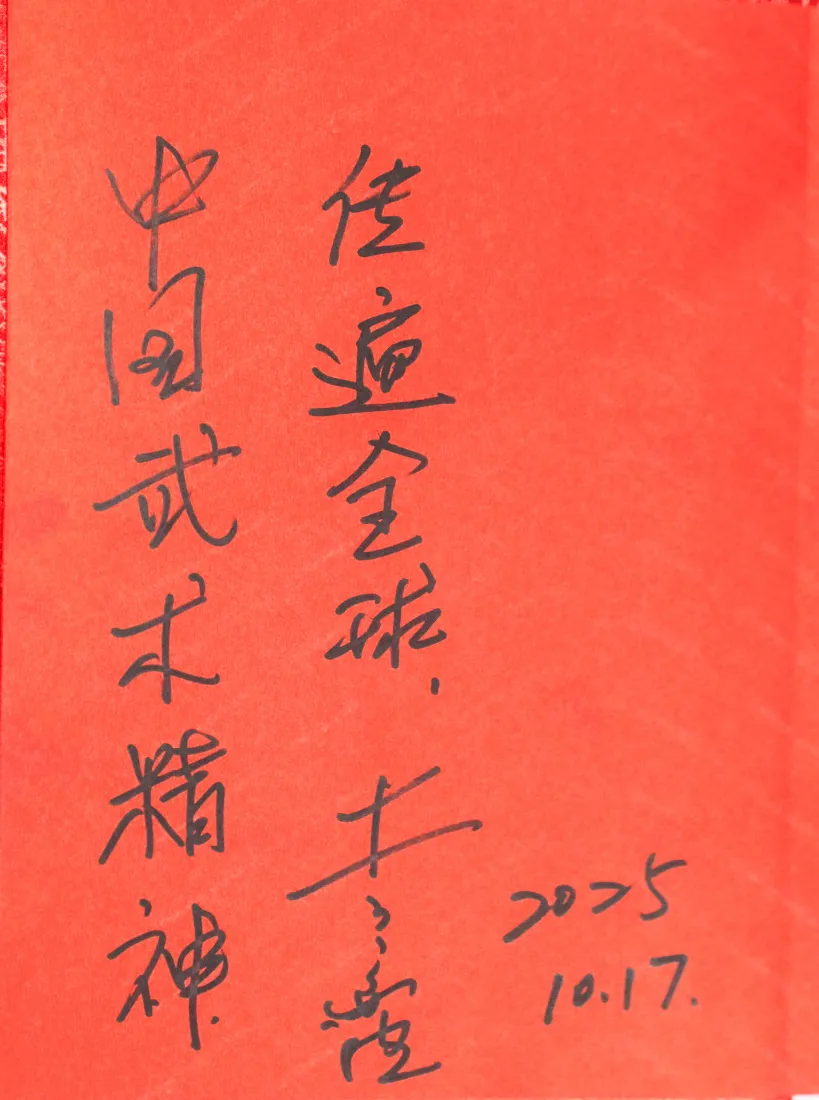 中国武术精神
传遍全球.
2025
10.17.